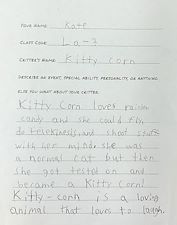 YOUR NAME Kate
CLASS CODE La-3
CRITTER'S NAME Kitty Corn
DESCRIBE AN EVENT, SPECIAL ABILITY, PERSONALITY, OR ANYTHING
ELSE YOU WANT ABOUT YOUR CRITTER.
Kitty Corn loves
candy and she could
do telekinesis, and shoot stuff
with her mind. she was
a normal cat but then
she got tested on and
became a Kitty Corn!
Kitty-corn is a loving
animal that loves to laugh.